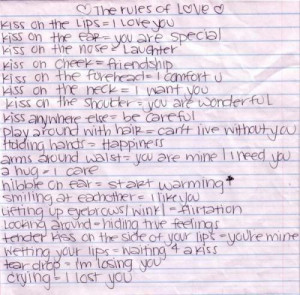 ♡The rules of LOVE♡
kiss on the Lips = I Love you
kiss on the ear = you are special
kiss on the nose = Laughter
kiss on cheek = friendship
kiss on the forehead = I comfort u
kiss on the neck = I want you
kiss on the shoulder = you are wonderful
kiss anywhere else = be careful
play around with hair = can't live without you
Holding hands = Happiness
arms around waist = you are mine I need you
a hug = I care
nibble on ear = start warming
smiling at eachother = I like you
Lifting up eyebrows/wink = flirtation
Looking around = hiding true feelings
tender kiss on the side of your lips = you're mine
wetting your lips = waiting 4 a kiss
tear drop = I'm losing you
crying = I lost you